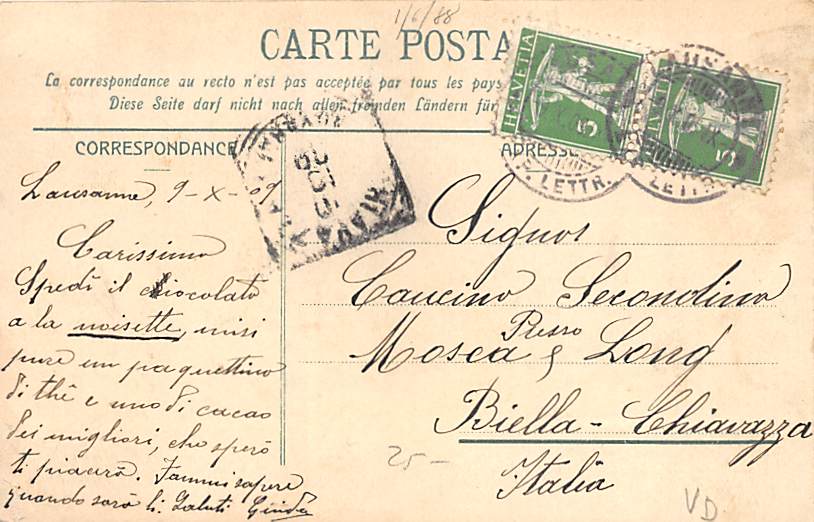 1/6/88
CARTE POSTA
La correspondance au recto n'est pas acceptée par tous les pays
Diese Seite darf nicht nach allen fremden Ländern für
CORRESPONDANCE
ADRESSE
HELVETIA 5
HELVETIA 5
LETTR.
LETTR.
Lausanne, 9-X-09
Carissimo
Spedì il chiocolato
a la noisette, misi
pure un paquettino
di thè e uno di cacao
dei migliori, che spero
ti piacerà. Fammi sapere
quando sarà lì. Saluti
Signor
Caucino Secondino
Presso
Mosca & Long
Biella - Chiavazza
Italia
25-
VD